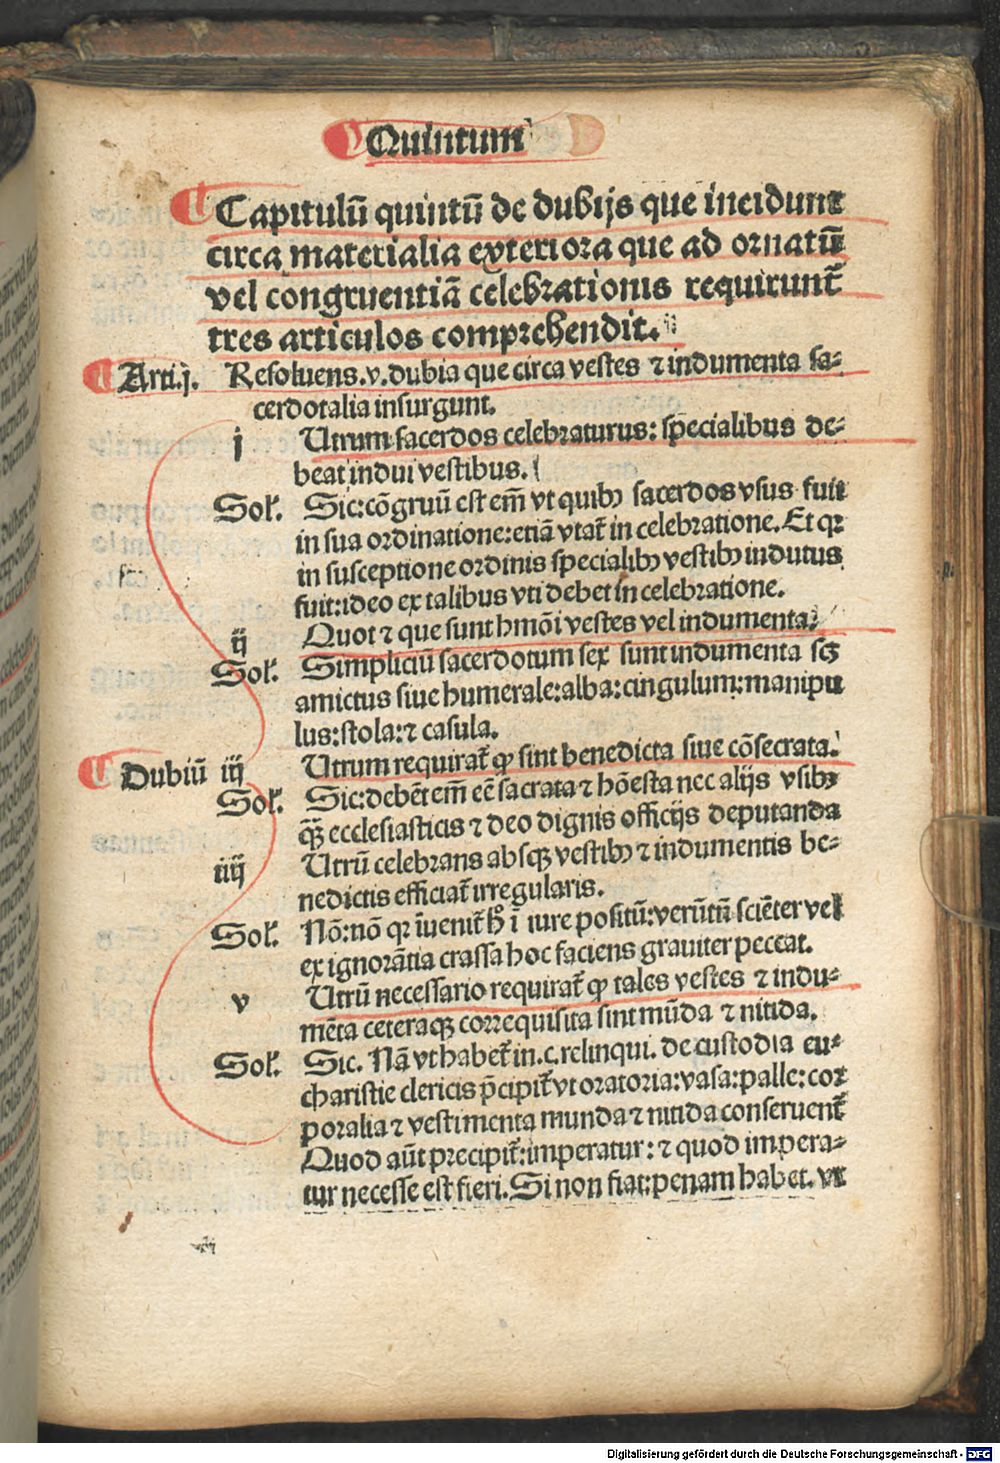 Quintum
Capitulū quintū de dubijs que incidunt
circa materialia exteriora que ad ornatū
vel congruentiā celebrationis requirunt̄
tres articulos comprehendit.
Arti.j. Resoluens.v.dubia que circa vestes ⁊ indumenta sa⸗
cerdotalia insurgunt.
j Utrum sacerdos celebraturus: specialibus de⸗
beat indui vestibus.
Sol'. Sic: cōgruū est em̄ vt quibꝰ sacerdos vsus fuit
in sua ordinatione: etiā vtat̄ in celebratione. Et qꝛ
in susceptione ordinis specialibꝰ vestibꝰ indutus
fuit: ideo ex talibus vti debet in celebratione.
ij Quot ⁊ que sunt hmōi vestes vel indumenta.
Sol'. Simpliciū sacerdotum sex sunt indumenta scꝫ
amictus siue humerale: alba: cingulum: manipu
lus: stola: ⁊ casula.
Dubiū iij Utrum requirat̄ ꝙ sint benedicta siue cōsecrata.
Sol'. Sic: debēt em̄ eē sacrata ⁊ hōesta nec alijs vsibꝰ
ꝙ̄ ecclesiasticis ⁊ deo dignis officijs deputanda
iiij Utrū celebrans absqꝫ vestibꝰ ⁊ indumentis be⸗
nedictis efficiat̄ irregularis.
Sol'. Nō: nō qꝛ īuenit̄ h̄ ī iure positū: verūtn̄ sciēter vel
ex ignorātia crassa hoc faciens grauiter peccat.
v Utrū necessario requirat̄ ꝙ tales vestes ⁊ indu⸗
mēta ceteraqꝫ correquisita sint mūda ⁊ nitida.
Sol'. Sic. Nā vt habet̄ in.c.relinqui. de custodia eu⸗
charistie clericis p̄cipit̄ vt oratoria: vasa: palle: cor
poralia ⁊ vestimenta munda ⁊ nitida conseruent̄
Quod aūt precipit̄: imperatur: ⁊ quod impera⸗
tur necesse est fieri. Si non fiat: penam habet. vt
Digitalisierung gefördert durch die Deutsche Forschungsgemeinschaft - DFG